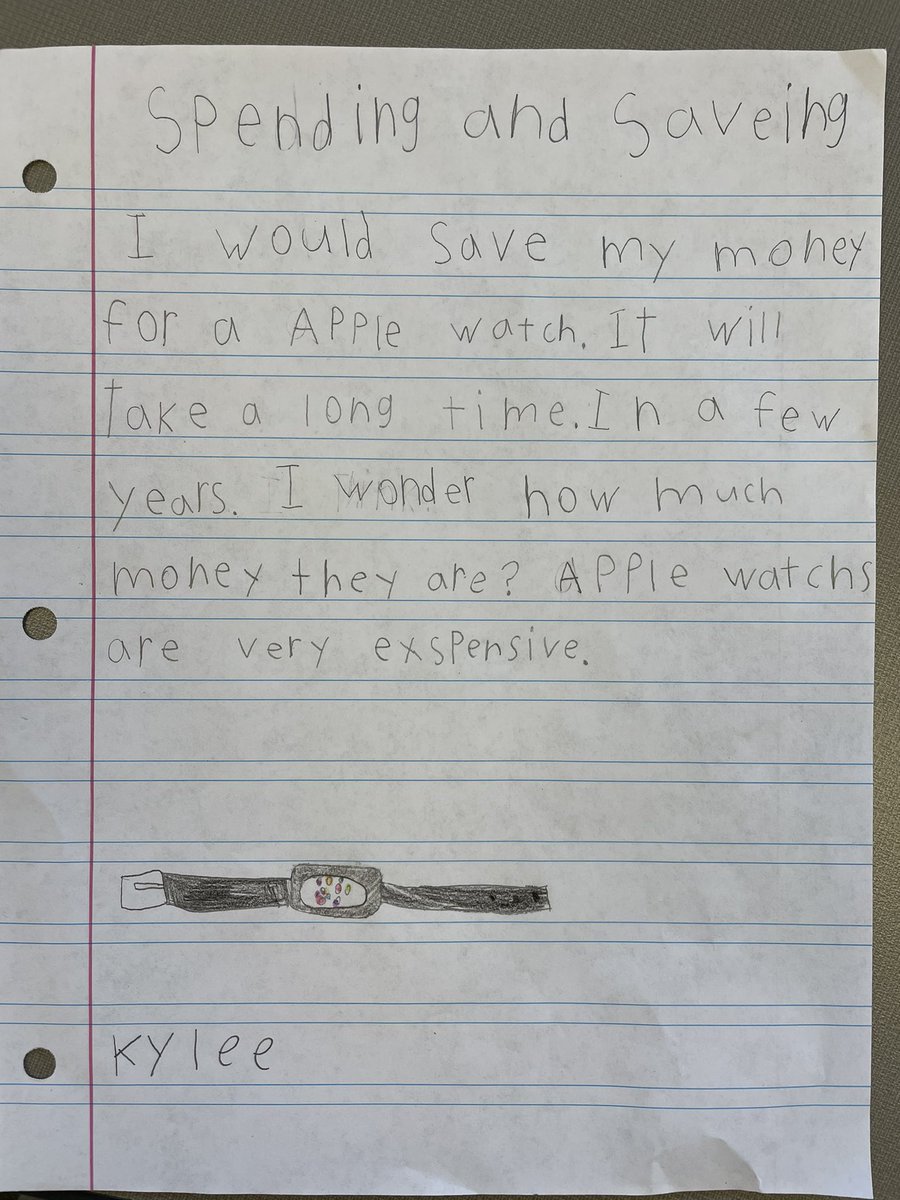 Spending and Saveing
I would save my money
for a Apple watch. It will
take a long time. In a few
years. I wonder how much
money they are? Apple watchs
are very exspensive.
Kylee